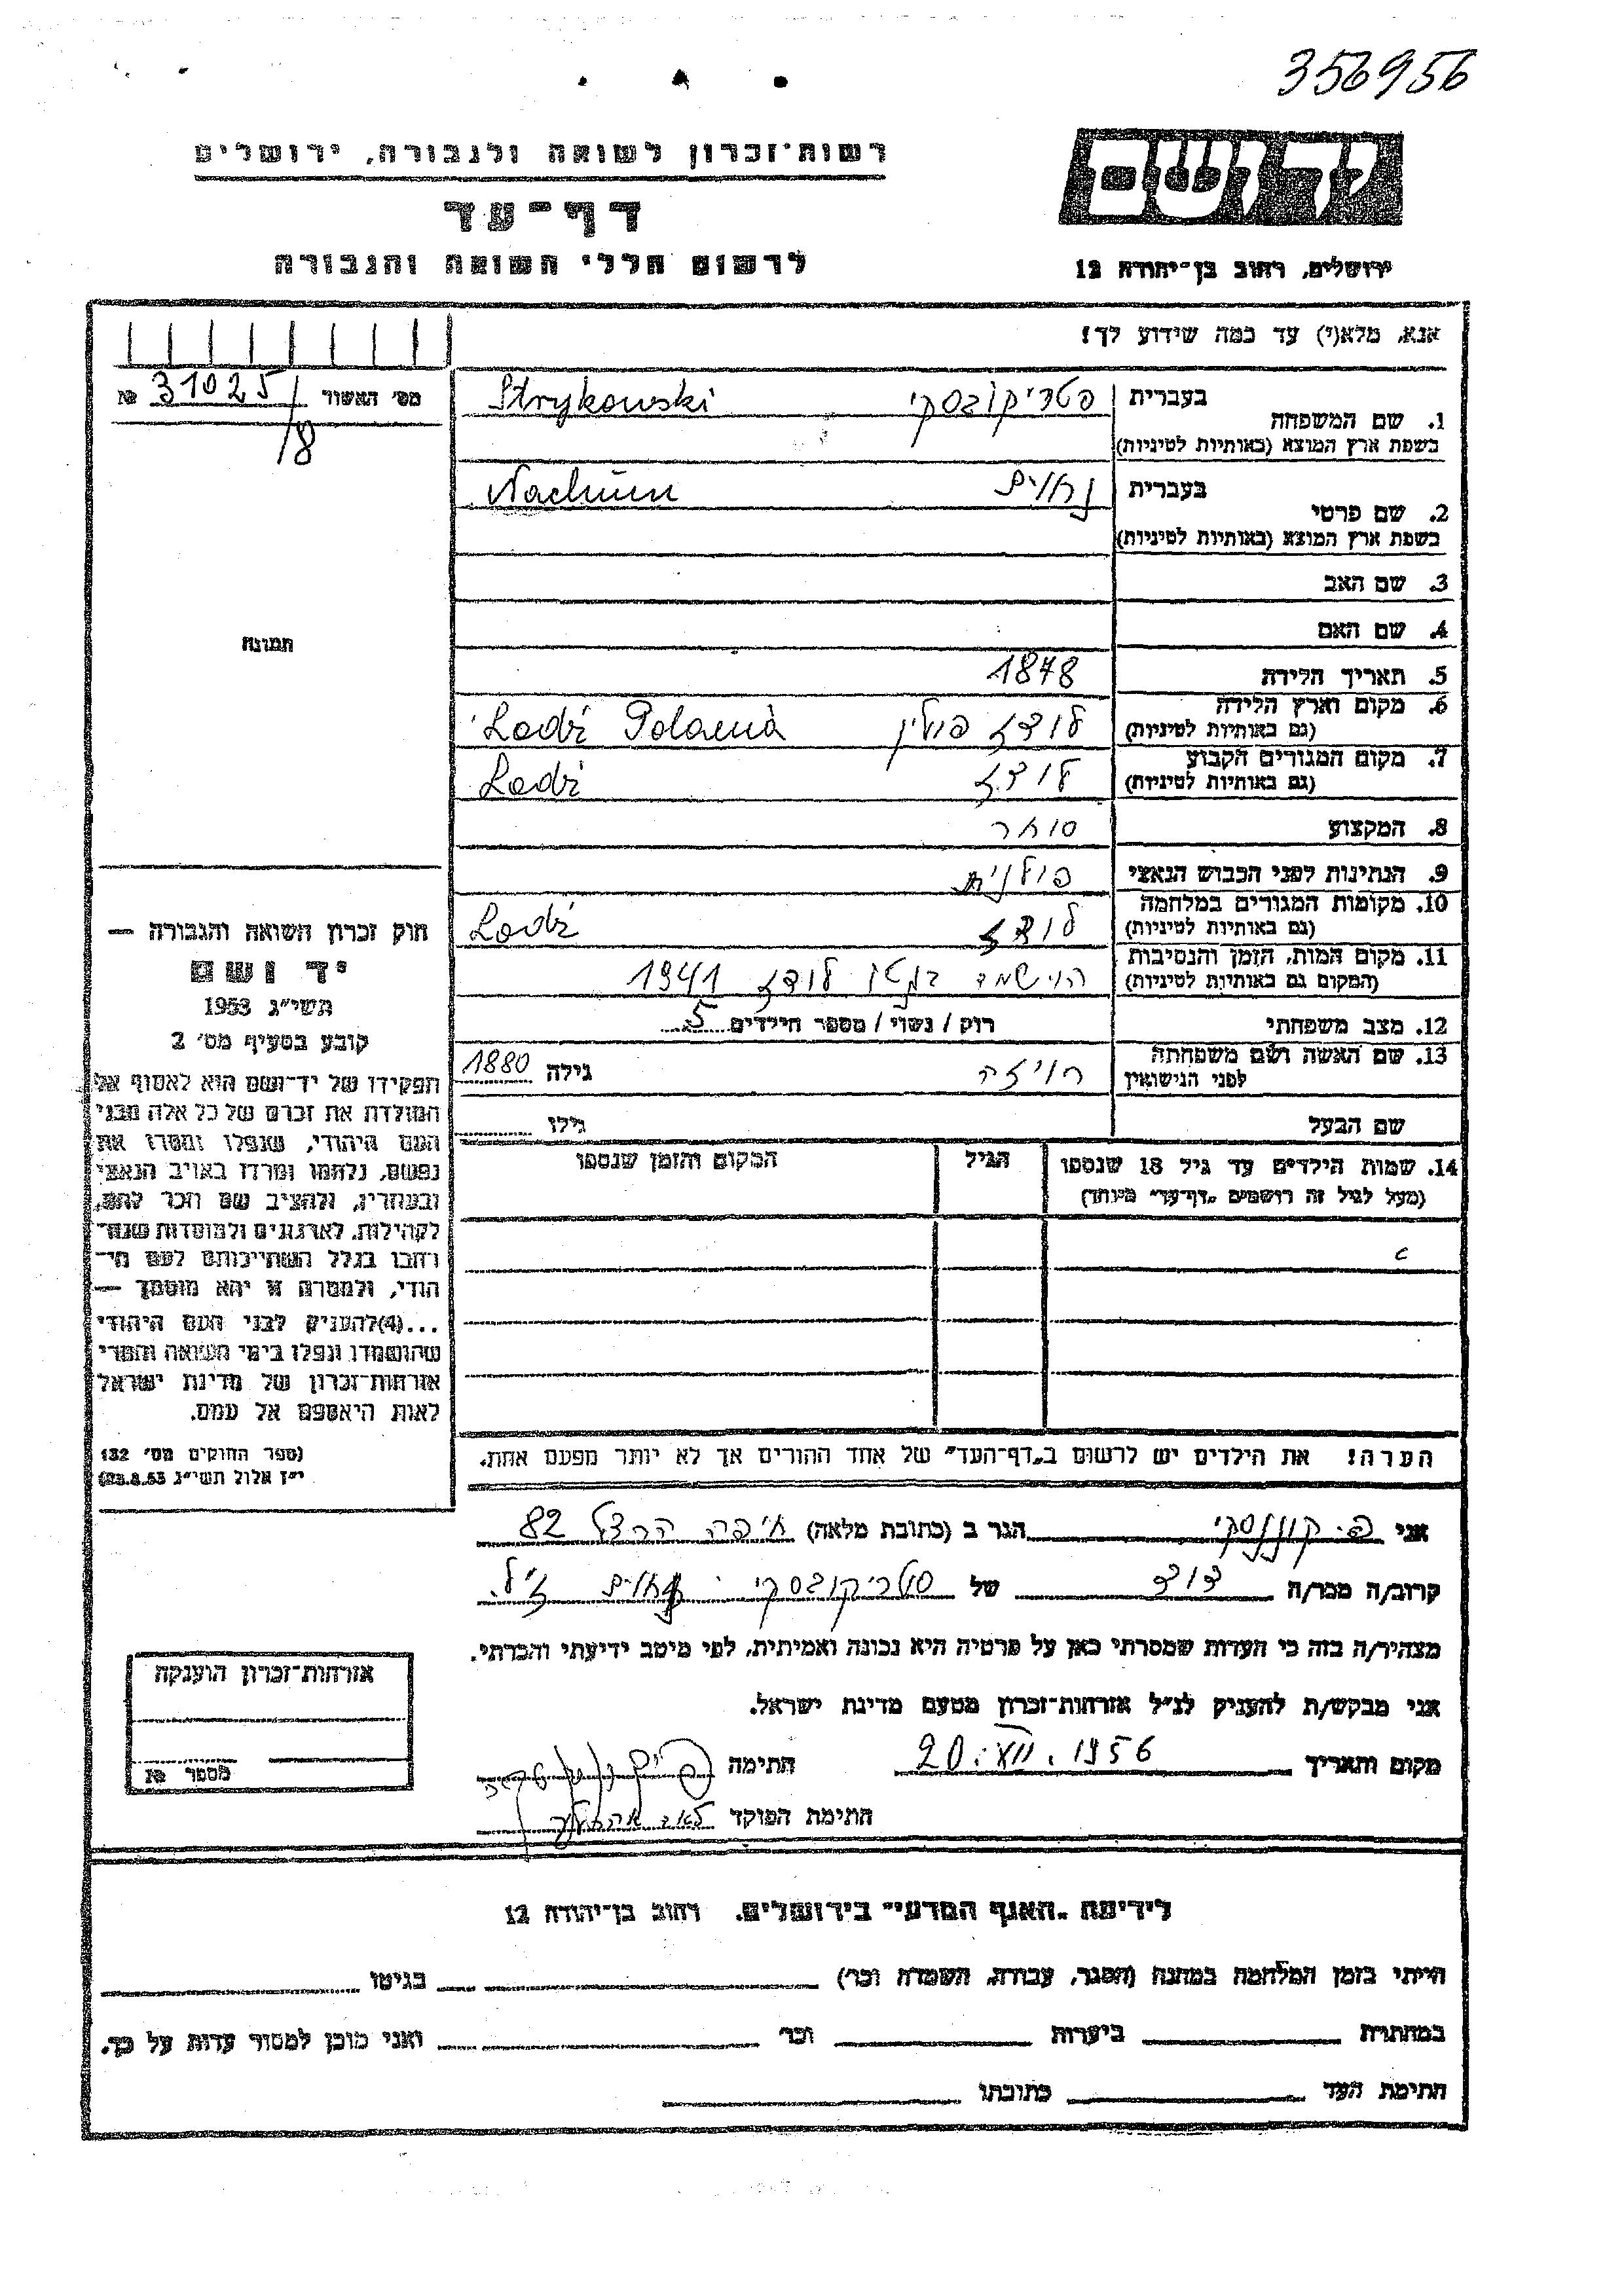 356956
יד ושם
רשות־זכרון לשואה ולגבורה, ירושלים
דף־עד
לרשום חללי השואה והגבורה
ירושלים, רחוב בן־יהודה 12
אנא, מלא(י) עד כמה שידוע לך!
מס׳ האשור 31025 №
/8
תמונה
חוק זכרון השואה והגבורה —
יד ושם
תשי״ג 1953
קובע בסעיף מס׳ 2
תפקידו של יד־ושם הוא לאסוף אל
המולדת את זכרם של כל אלה מבני
העם היהודי, שנפלו ומסרו את
נפשם, נלחמו ומרדו באויב הנאצי
ובעוזריו, ולהציב שם וזכר להם,
לקהילות, לארגונים ולמוסדות שנח־
רבו בגלל השתייכותם לעם הי־
הודי, ולמטרה זו יהא מוסמך —
...(4)להעניק לבני העם היהודי
שהושמדו ונפלו בימי השואה והמרי
אזרחות־זכרון של מדינת ישראל
לאות היאספם אל עמם.
(ספר החוקים מס׳ 132
י״ז אלול תשי״ג 28.8.53)
1. שם המשפחה בעברית סטריקובסקי Strykowski
בשפת ארץ המוצא (באותיות לטיניות)
2. שם פרטי בעברית נחום Nachum
בשפת ארץ המוצא (באותיות לטיניות)
3. שם האב
4. שם האם
5. תאריך הלידה 1878
6. מקום וארץ הלידה לודז פולין Lodź Polania
(גם באותיות לטיניות)
7. מקום המגורים הקבוע לודז Lodź
(גם באותיות לטיניות)
8. המקצוע סוחר
9. הנתינות לפני הכבוש הנאצי פולנית
10. מקומות המגורים במלחמה לודז Lodź
(גם באותיות לטיניות)
11. מקום המות, הזמן והנסיבות 1941
(המקום גם באותיות לטיניות)
12. מצב משפחתי רוק / נשוי / מספר הילדים 5
13. שם האשה ושם משפחתה גילה 1880
לפני הנישואין
שם הבעל גילו
14. שמות הילדים עד גיל 18 שנספו הגיל המקום והזמן שנספו
(מעל לגיל זה רושמים „דף־עד״ מיוחד)
הערה! את הילדים יש לרשום ב„דף־העד״ של אחד ההורים אך לא יותר מפעם אחת.
אני הגר ב (כתובת מלאה) חיפה הרצל 82
קרוב/ה מכר/ה של סטריקובסקי נחום ז״ל
מצהיר/ה בזה כי העדות שמסרתי כאן על פרטיה היא נכונה ואמיתית, לפי מיטב ידיעתי והכרתי.
אני מבקש/ת להעניק לנ״ל אזרחות־זכרון מטעם מדינת ישראל.
מקום ותאריך 1956 חתימה
חתימת הפוקד
אזרחות־זכרון הוענקה
מספר №
לידיעת „האגף המדעי״ בירושלים. רחוב בן־יהודה 12
הייתי בזמן המלחמה במחנה (הסגר, עבודה, השמדה וכו׳) בגיטו
במחתרת ביערות וכו׳ ואני מוכן למסור עדות על כך.
חתימת העד כתובתו